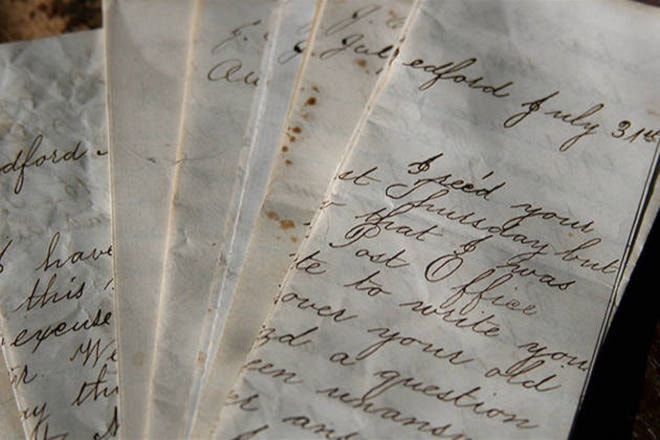 dford
have
this
excuse
r. We
ay thi
J.
Au
J.
J. Jul
edford July 31st
I rec'd your
st Thursday but
that I was
Post Office
te to write you
over your old
nd a question
een unans
er an